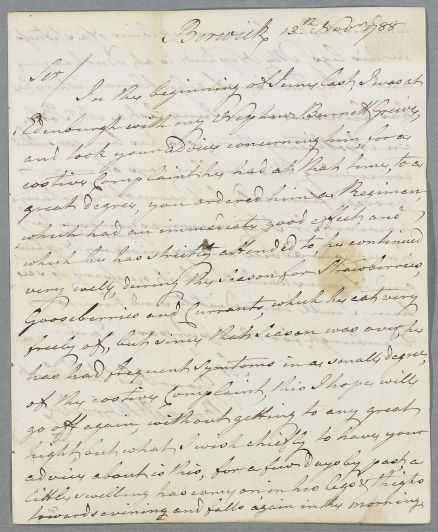 Berwick 13.th Nov.r 1788
Sir/
In the beginning of June last I was at
Edinburgh with my Nephew Burnet Grieve,
and took your advice concerning him, for a
costive Complaint he had at that time, to a
great degree, you ordered him a Regimen,
which had an immediate good effect and
which he has strictly attended to, he continued
very well, during the season for Strawberries
Gooseberries and Currants, which he eat very
freely of, but since that Season was over, he
has had frequent Symtoms in a small degree,
of the costive Complaint, this I hope will
go off again, without getting to any great
hight but what I wish chiefly to have your
advice about is this, for a few days by past, a
little swelling has come on in his Legs & thighs
towards evening and falls again in the morning,